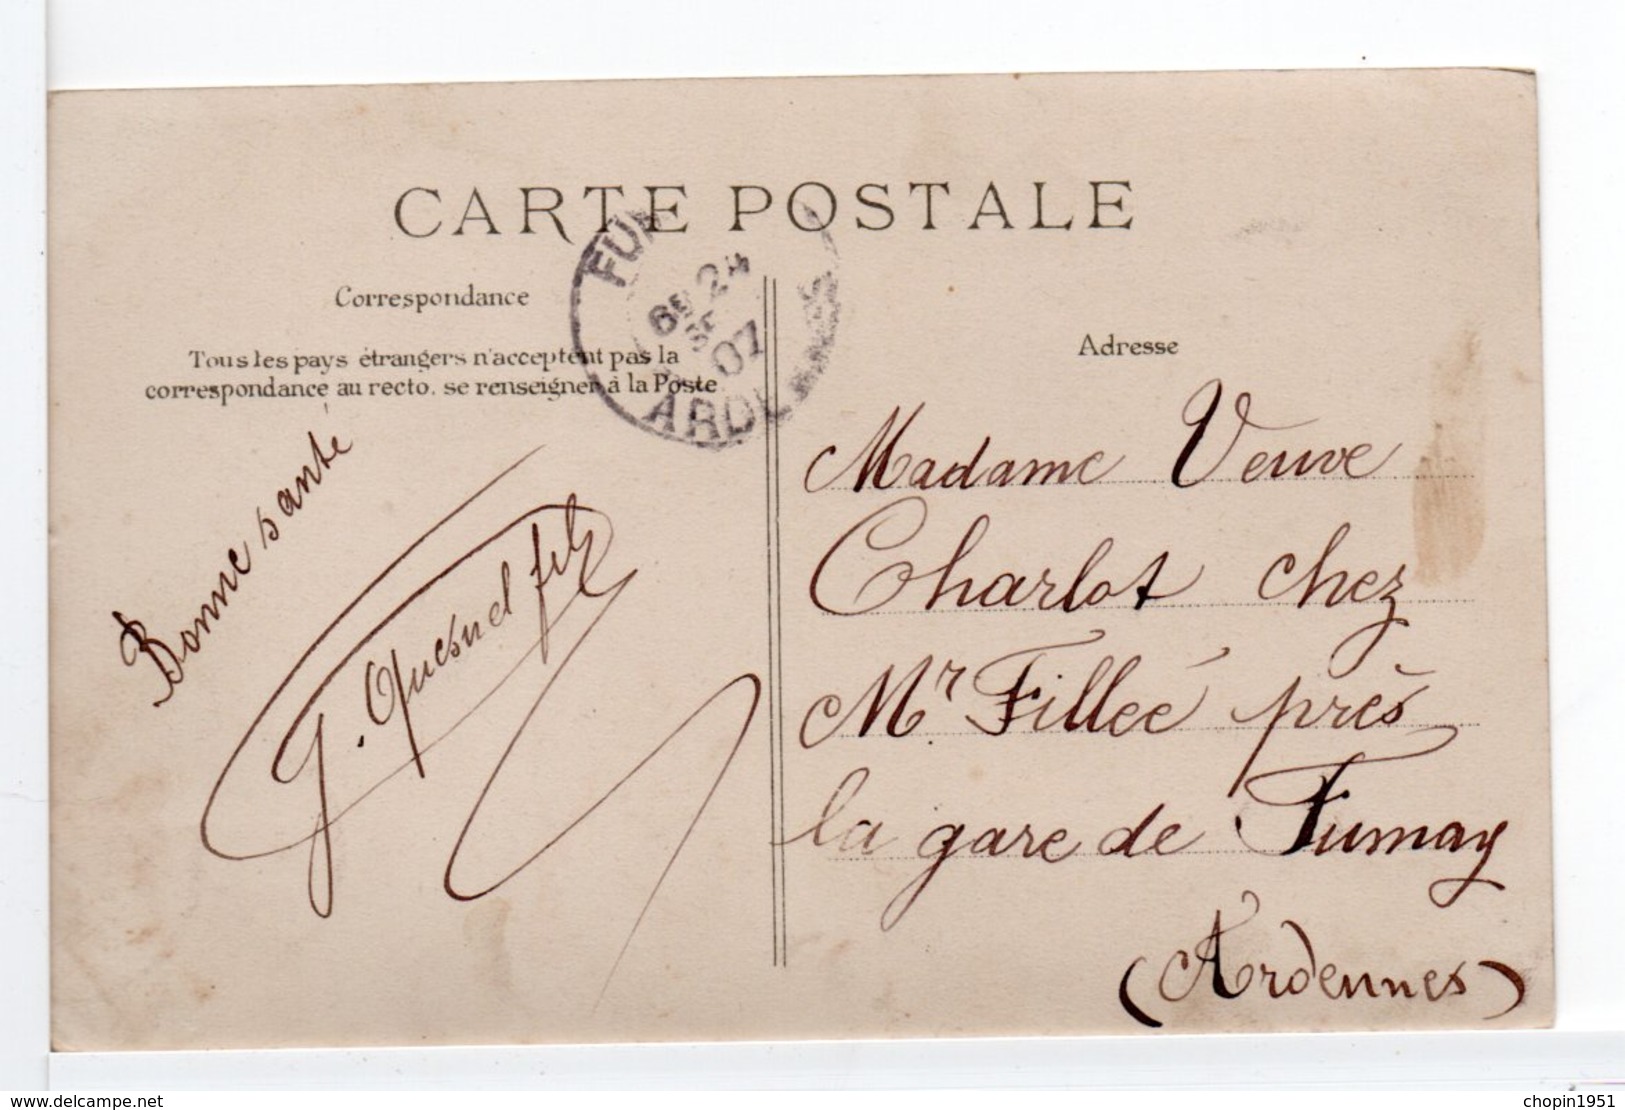 CARTE POSTALE
Correspondance
Tous les pays étrangers n'acceptent pas la
correspondance au recto. se renseigner à la Poste
24
07
ARD
Bonne santé
G. Quesnel fils
Adresse
Madame Veuve
Charlot chez
Mr Filleé près
la gare de Fumay
(Ardennes)
www.delcampe.net
chopin1951